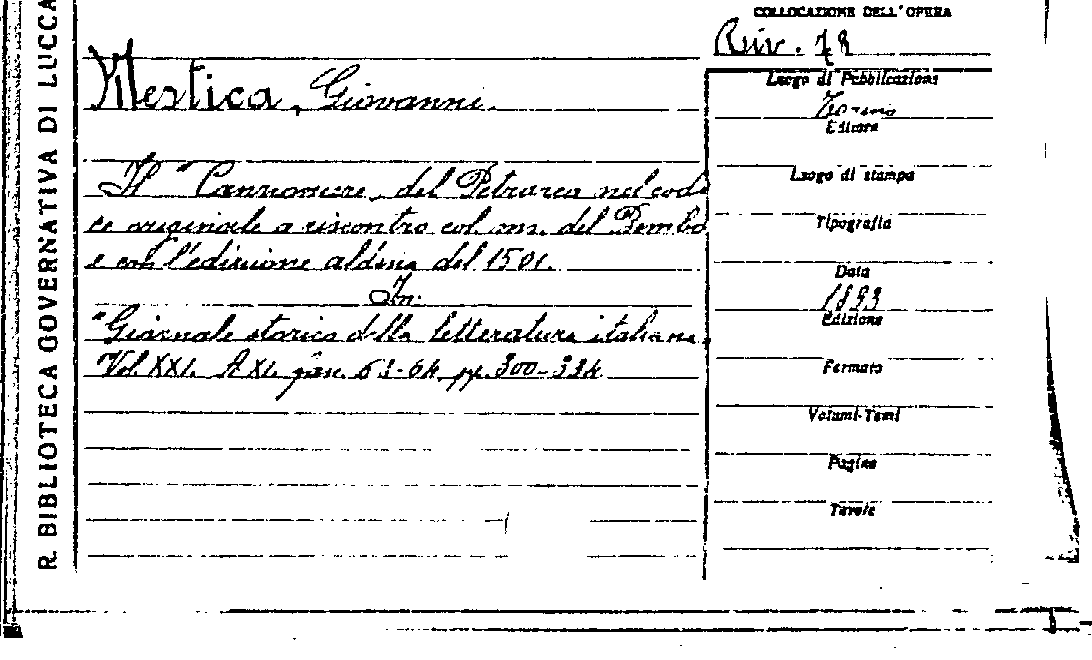 R. BIBLIOTECA GOVERNATIVA DI LUCCA
COLLOCAZIONE DELL'OPERA
Riv. 78
Mestica, Giovanni.
Il "Canzoniere" del Petrarca nel codi
ce originale a riscontro col ms. del Bembo
e con l'edizione aldina del 1501.
In:
"Giornale storico della letteratura italiana"
Vol. XXI. A XI. fasc. 63-64 pp. 300-334
Luogo di Pubblicazione
Torino
Editore
Luogo di stampa
Tipografia
Data
1893
Edizione
Formato
Volumi-Tomi
Pagine
Tavole